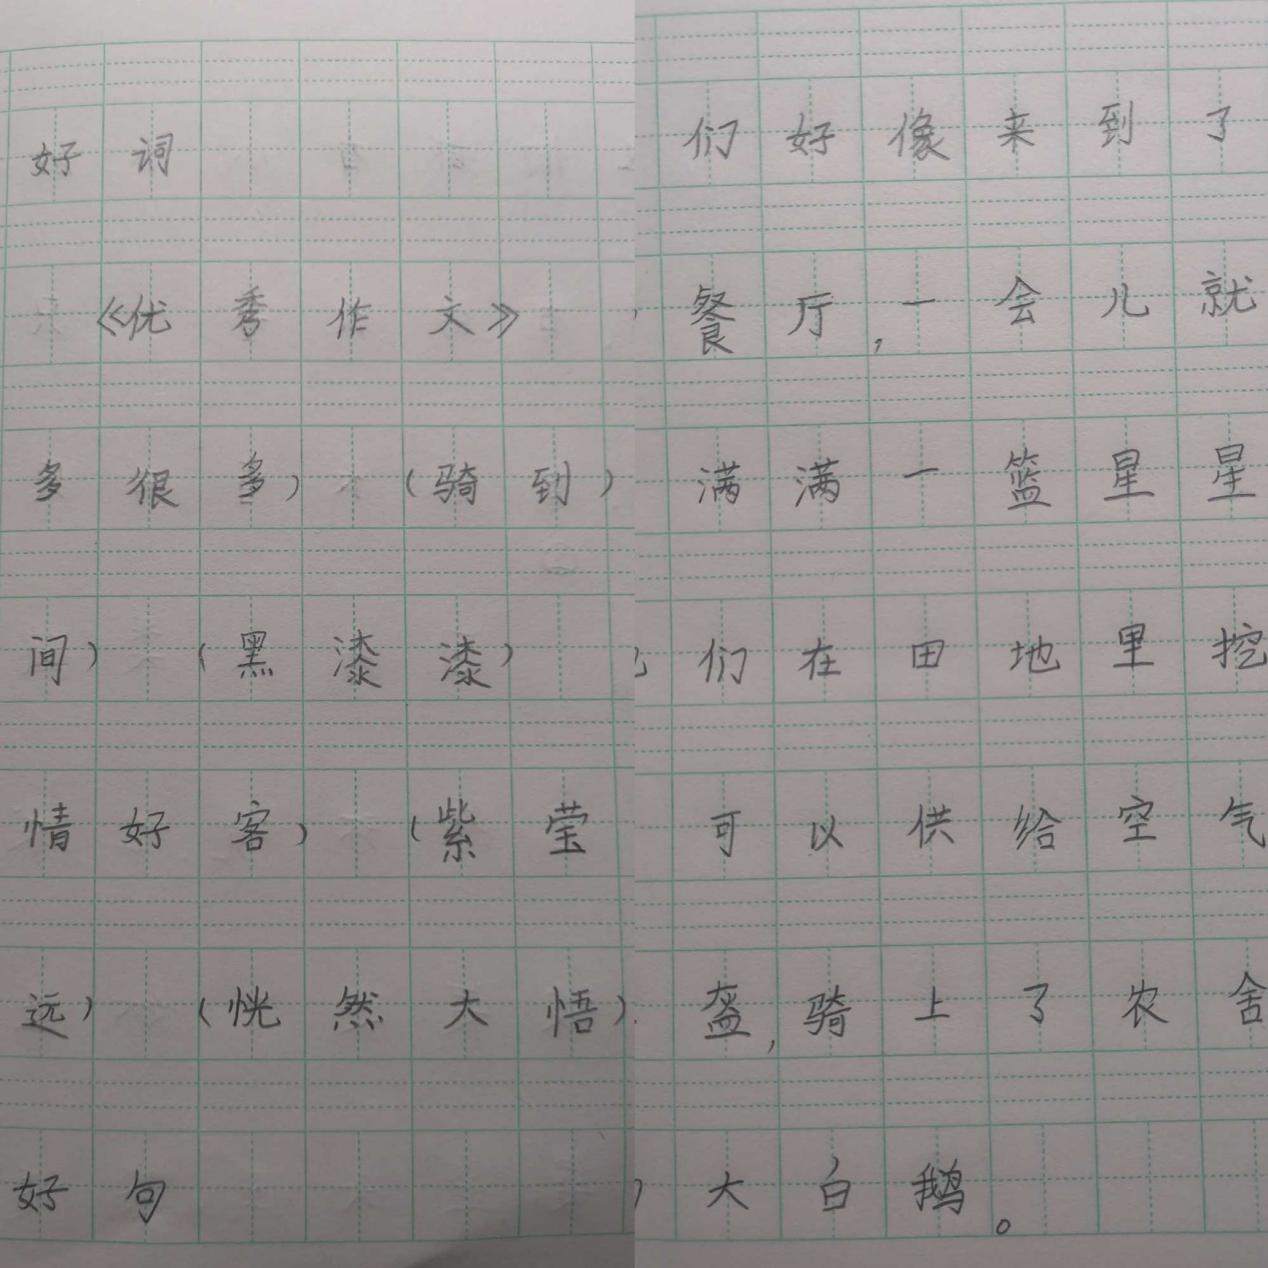 好词
《优秀作文》
多很多） （骑到）
间） （黑漆漆）
情好客） （紫莹
远） （恍然大悟）
好句
们好像来到了
餐厅，一会儿就
满满一篮星星
们在田地里挖
可以供给空气
盔，骑上了农舍
大白鹅。